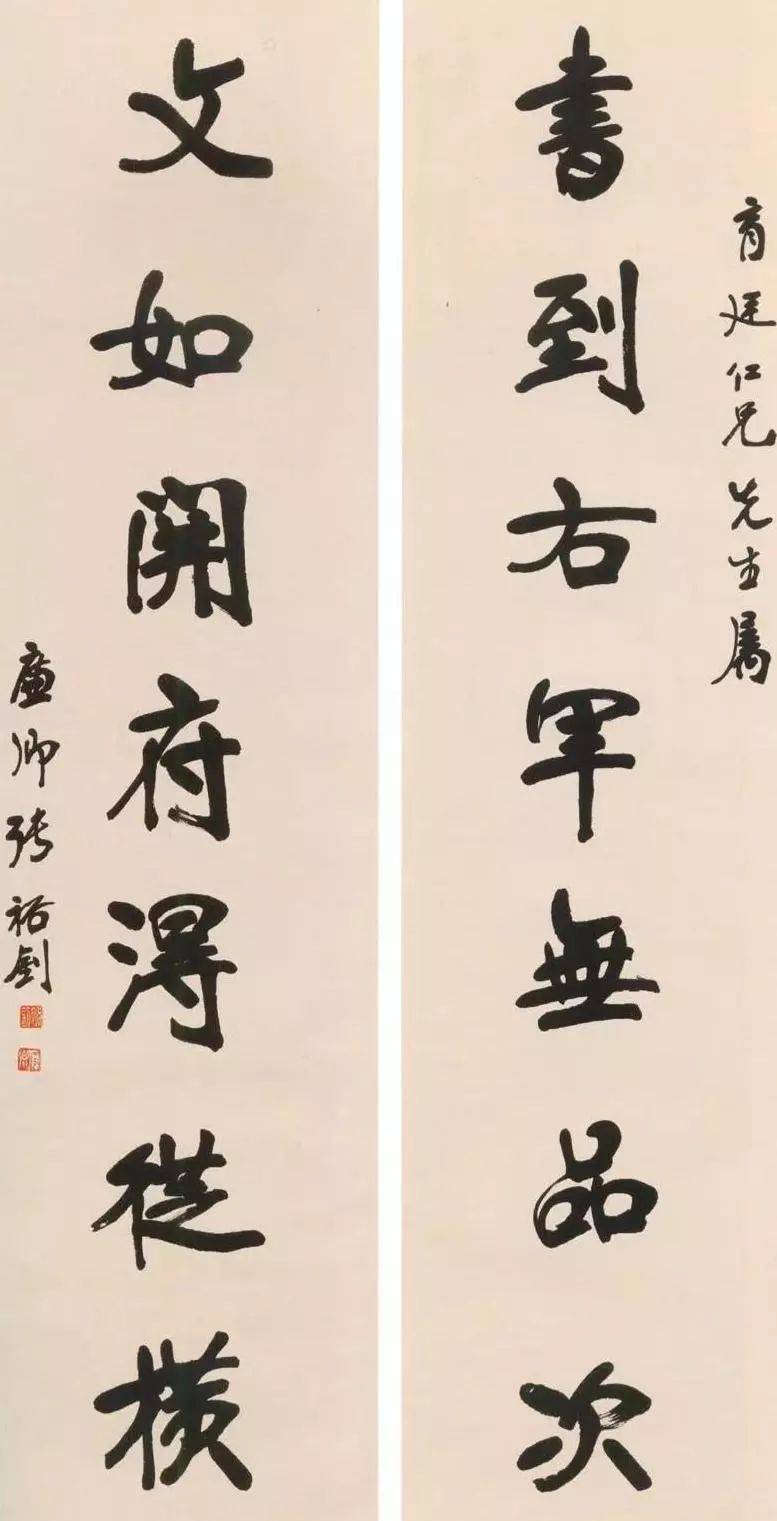 育廷仁兄先生属
書到右軍無品次
文如開府淂從橫
廉卿張裕釗